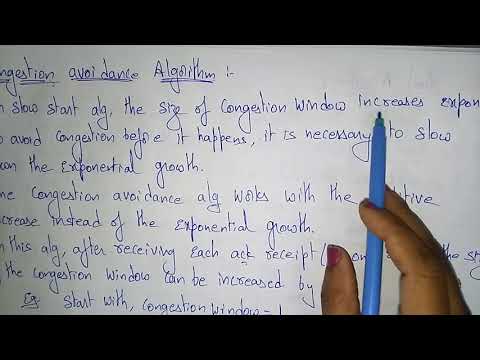 ngestion avoidance Algorithm :-
n slow start alg, the size of Congestion Window increases expon
o avoid congestion before it happens, it is necessary to slow
own the Exponential growth.
he Congestion avoidance alg works with the itive
crease instead of the exponential growth.
n this alg, after receiving each ack receipt ( on the
the congestion window can be increased by
Eg. Start with, congestion window = 1